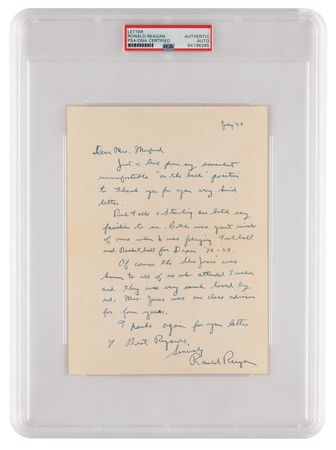 LETTER
RONALD REAGAN
PSA/DNA CERTIFIED
AUTHENTIC
AUTO
84198285
July 28
Dear Mrs. 
Just a line from my somewhat
uncomfortable "on the back" position
to thank you for your very kind
letter.
Rock Falls & Sterling are both very
familiar to me. Both were great rivals
of ours when I was playing Football
and Basketball for Dixon
Of course the Glee Jones' was
known to all of us who attended Eureka
and they were very much loved by
us. Mrs. Jones was our class advisor
for four years.
Thanks again for your letter
& Best Regards.
Sincerely
Ronald Reagan